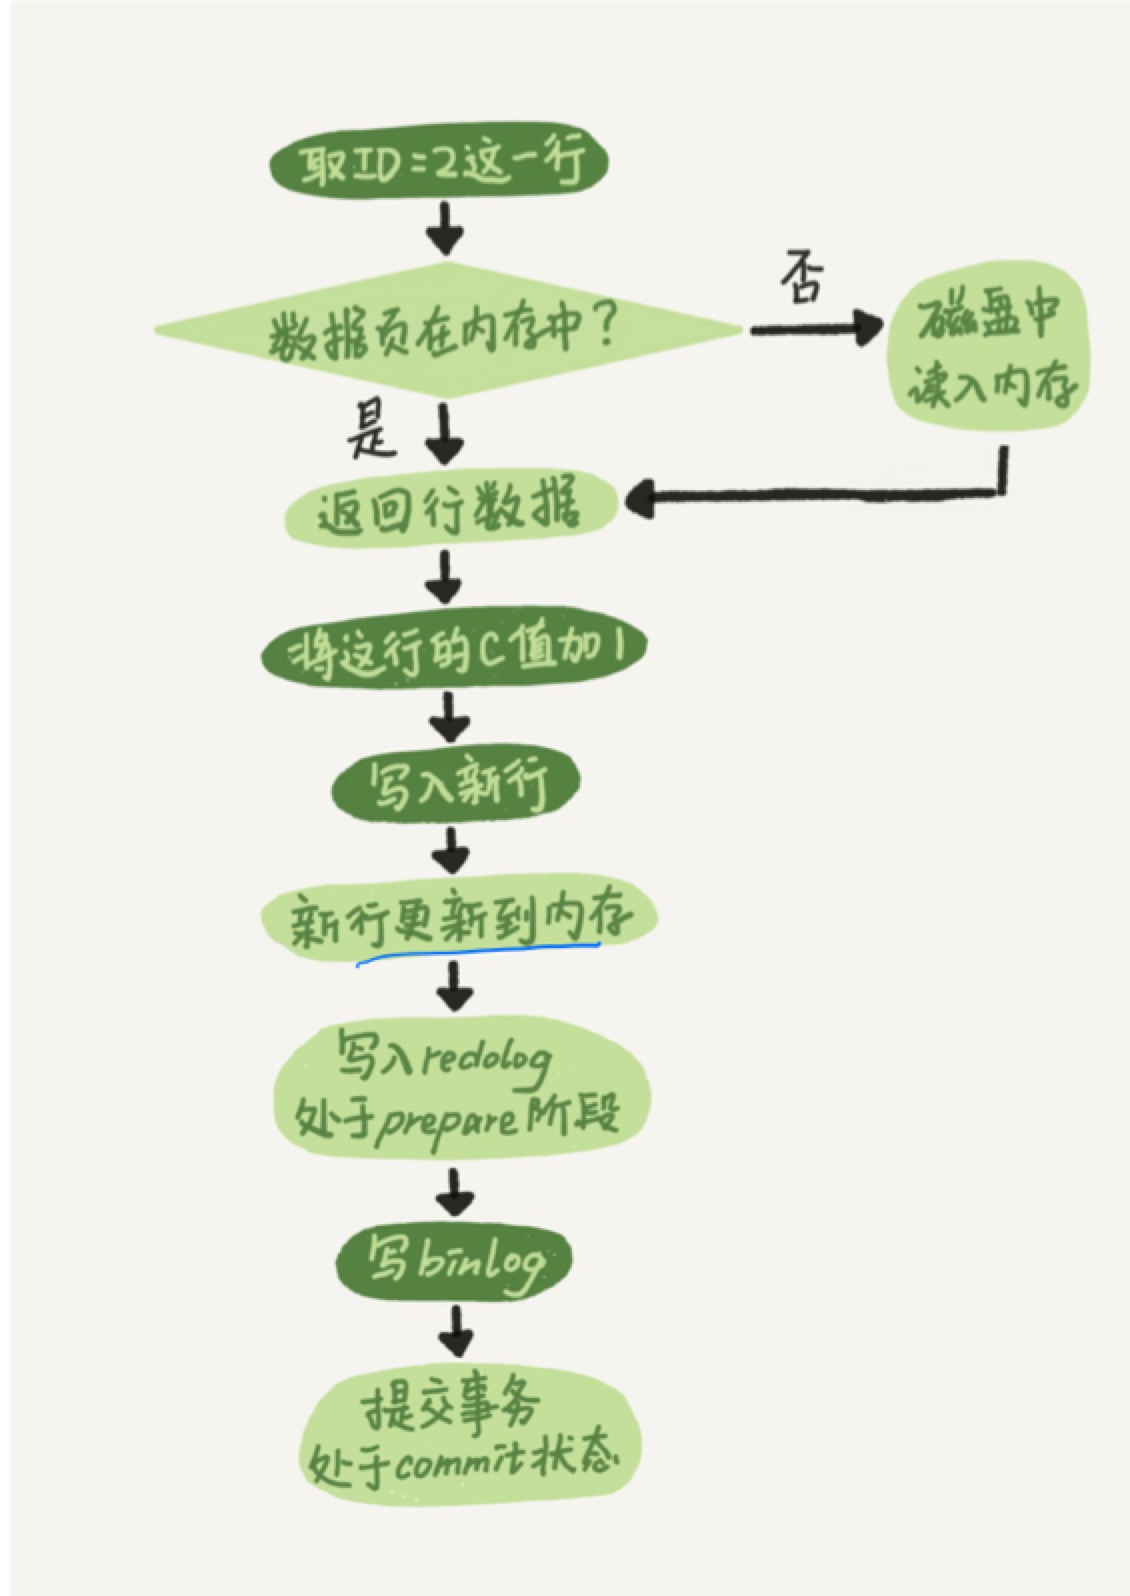 取ID=2这一行
数据页在内存中?
否
磁盘中
读入内存
是
返回行数据
将这行的C值加1
写入新行
新行更新到内存
写入redolog
处于prepare阶段
写binlog
提交事务
处于commit状态